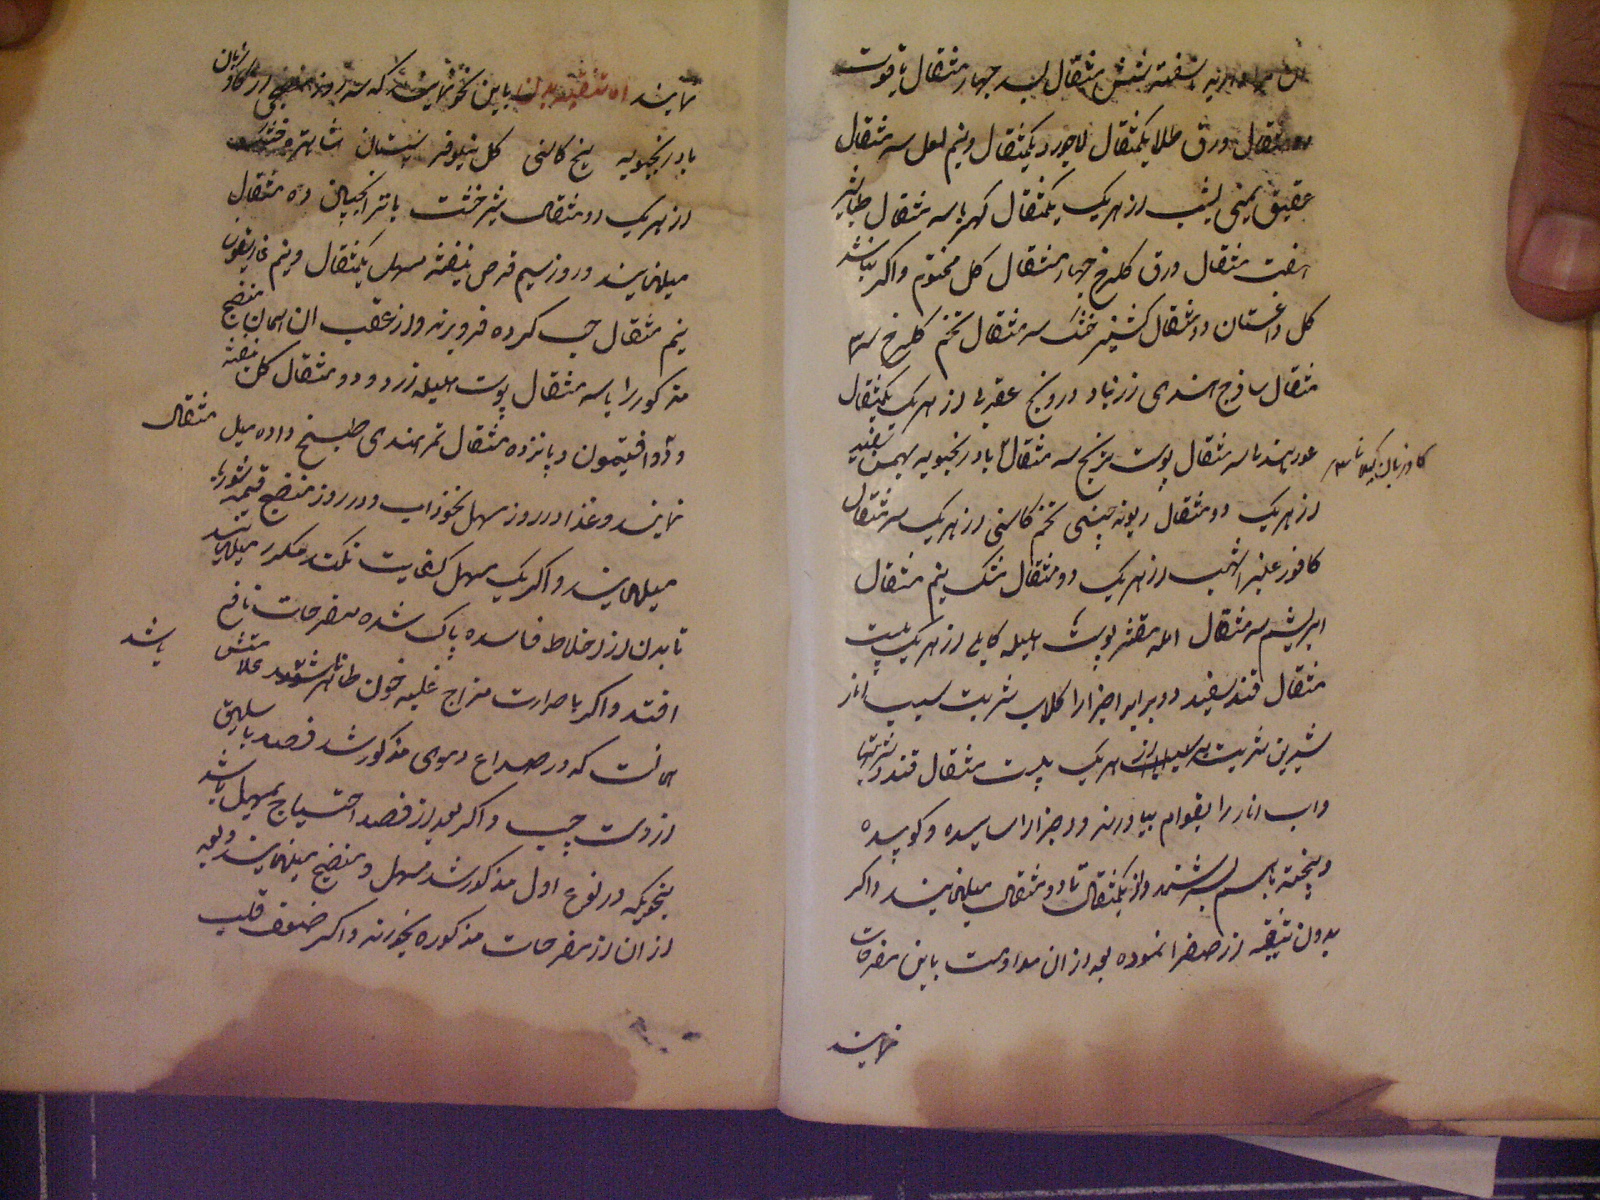 سفته شش مثقال بسد چهار مثقال یاقوت
مثقال ورق طلا یکمثقال لاجورد یکمثقال و نیم لعل سه مثقال
عقیق یمنی یشب از هر یک یکمثقال کهربا سه مثقال طباشیر
هفت مثقال ورق کلسرخ چهار مثقال کل مختوم و اکر نباشد
کل داغستان دو مثقال کشنیز خشک سه مثقال تخم کلسرخ سه
مثقال ساذج هندی زرنباد درونج عقربی از هر یک یکمثقال
عود هندی سه مثقال پوست ترنج سه مثقال بادرنجبویه بهمن سفید
کاوزبان کیلانی
از هر یک دو مثقال ریوند چینی تخم کاسنی از هر یک سه مثقال
کافور عنبر اشهب از هر یک دو مثقال مشک نیم مثقال
ابریشم سه مثقال امله مقشر پوست هلیله کابلی از هر یک بیست
مثقال قند سفید دو برابر اجزا کلاب شربت سیب انار
شیرین شربت به از هر یک بیست مثقال قند و شربتها
و اب انار را بقوام بیاورند و اجزا را ساییده و کوبیده
و پیخته باهم بسرشند و از یکمثقال تا دو مثقال میل نمایند و اکر
بدون تنقیه از صفرا نموده بعد از ان مداومت باین مفرحات
نمایند
نمایند اما تنقیه بدن باین نحو نمایند که سه روز منضجی از کاو زبان
بادرنجبویه بیخ کاسنی کل نیلوفر سپستان شاهتره خشک
از هر یک دو مثقال شیرخشت یا ترانجبین ده مثقال
میل نمایند و روز سیم قرص بنفشه مسهل یکمثقال و نیم غاریقون
نیم مثقال حب کرده فرو برند و از عقب ان همان منضج
مذکور را با سه مثقال پوست هلیله زرد و دو مثقال کل بنفشه
و دو افتیمون و پانزده مثقال تمر هندی طبخ داده میل
مثقال
نمایند و غذا در روز مسهل نخوداب و در روز منضج قیمه شوربا
میل نمایند و اکر یک مسهل کفایت نکند مکرر میل نمایند
تا بدن از اخلاط فاسده پاک شده مفرحات نافع
افتد و اکر با حرارت مزاج غلبه خون ظاهر باشد علامتش
همانست که در صداع دموی مذکور شد فصد باسلیق
از دست چپ و اکر بعد از فصد احتیاج بمسهل باشد
بنحویکه در نوع اول مذکور شد مسهل و منضج میل نمایند و بعد
از ان از مفرحات مذکوره بخورند و اکر ضعف قلب
باشد